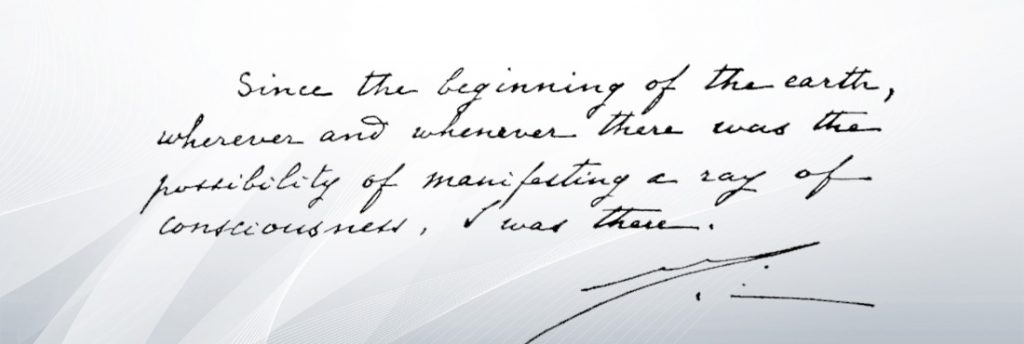 Since the beginning of the earth,
wherever and whenever there was the
possibility of manifesting a ray of
consciousness, I was there.